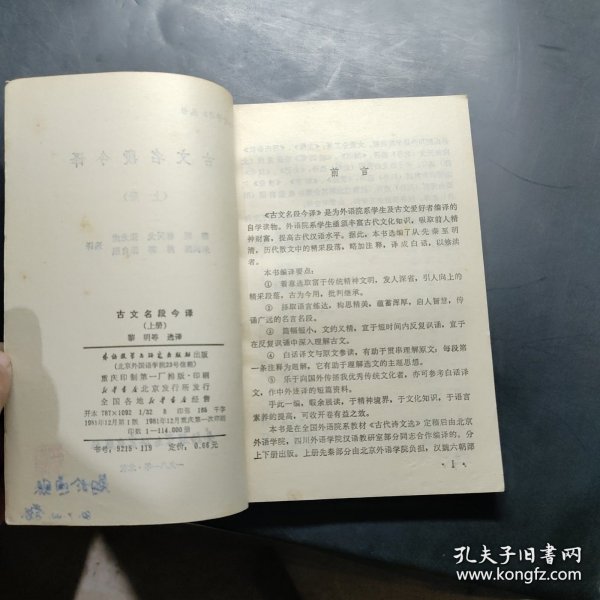 古文名段今译
(上册)
黎明等 选译
外语教学与研究出版社出版
(北京外国语学院23号信箱)
重庆印制第一厂排版·印刷
新华书店北京发行所发行
全国各地新华书店经售
开本 787×1092 1/32 8 印张 186 千字
1981年12月第1版 1981年12月重庆第一次印刷
印数 1—114,000册
书号:9215·119 定价:0.66元
前言
《古文名段今译》是为外语院系学生及古文爱好者编译的
自学读物。外语院系学生亟须丰富古代文化知识,吸取前人精
神财富,提高古代汉语水平。据此,本书选编了从先秦至明
清,历代散文中的精采段落,略加注释,译成白话,以飨读
者。
本书编译要点:
① 着意选取富于传统精神文明,发人深省,引人向上的
精采段落,古为今用,批判继承。
② 择取语言练达,构思精美,蕴蓄浑厚,启人智慧,传
诵广远的名言名段。
③ 篇幅短小,文约义精,宜于短时间内反复识诵,宜于
在反复识诵中深入理解古文。
④ 白话译文与原文参读,有助于贯串理解原文;每段第
一条注释为题解,它有助于理解选文的主题思想。
⑤ 乐于向国外传播我优秀传统文化者,亦可参考白话译
文,作中外连译的短篇资料。
手此一编,暇余展读,于精神境界,于文化知识,于语言
素养的提高,可收开卷有益之效。
本书是在全国外语院系教材《古代诗文选》定稿后由北京
外语学院,四川外语学院汉语教研室部分同志合作编译的,分
上下册出版。上册先秦部分由北京外语学院负担,汉魏六朝部
·1·
孔夫子旧书网
www.kongfz.com